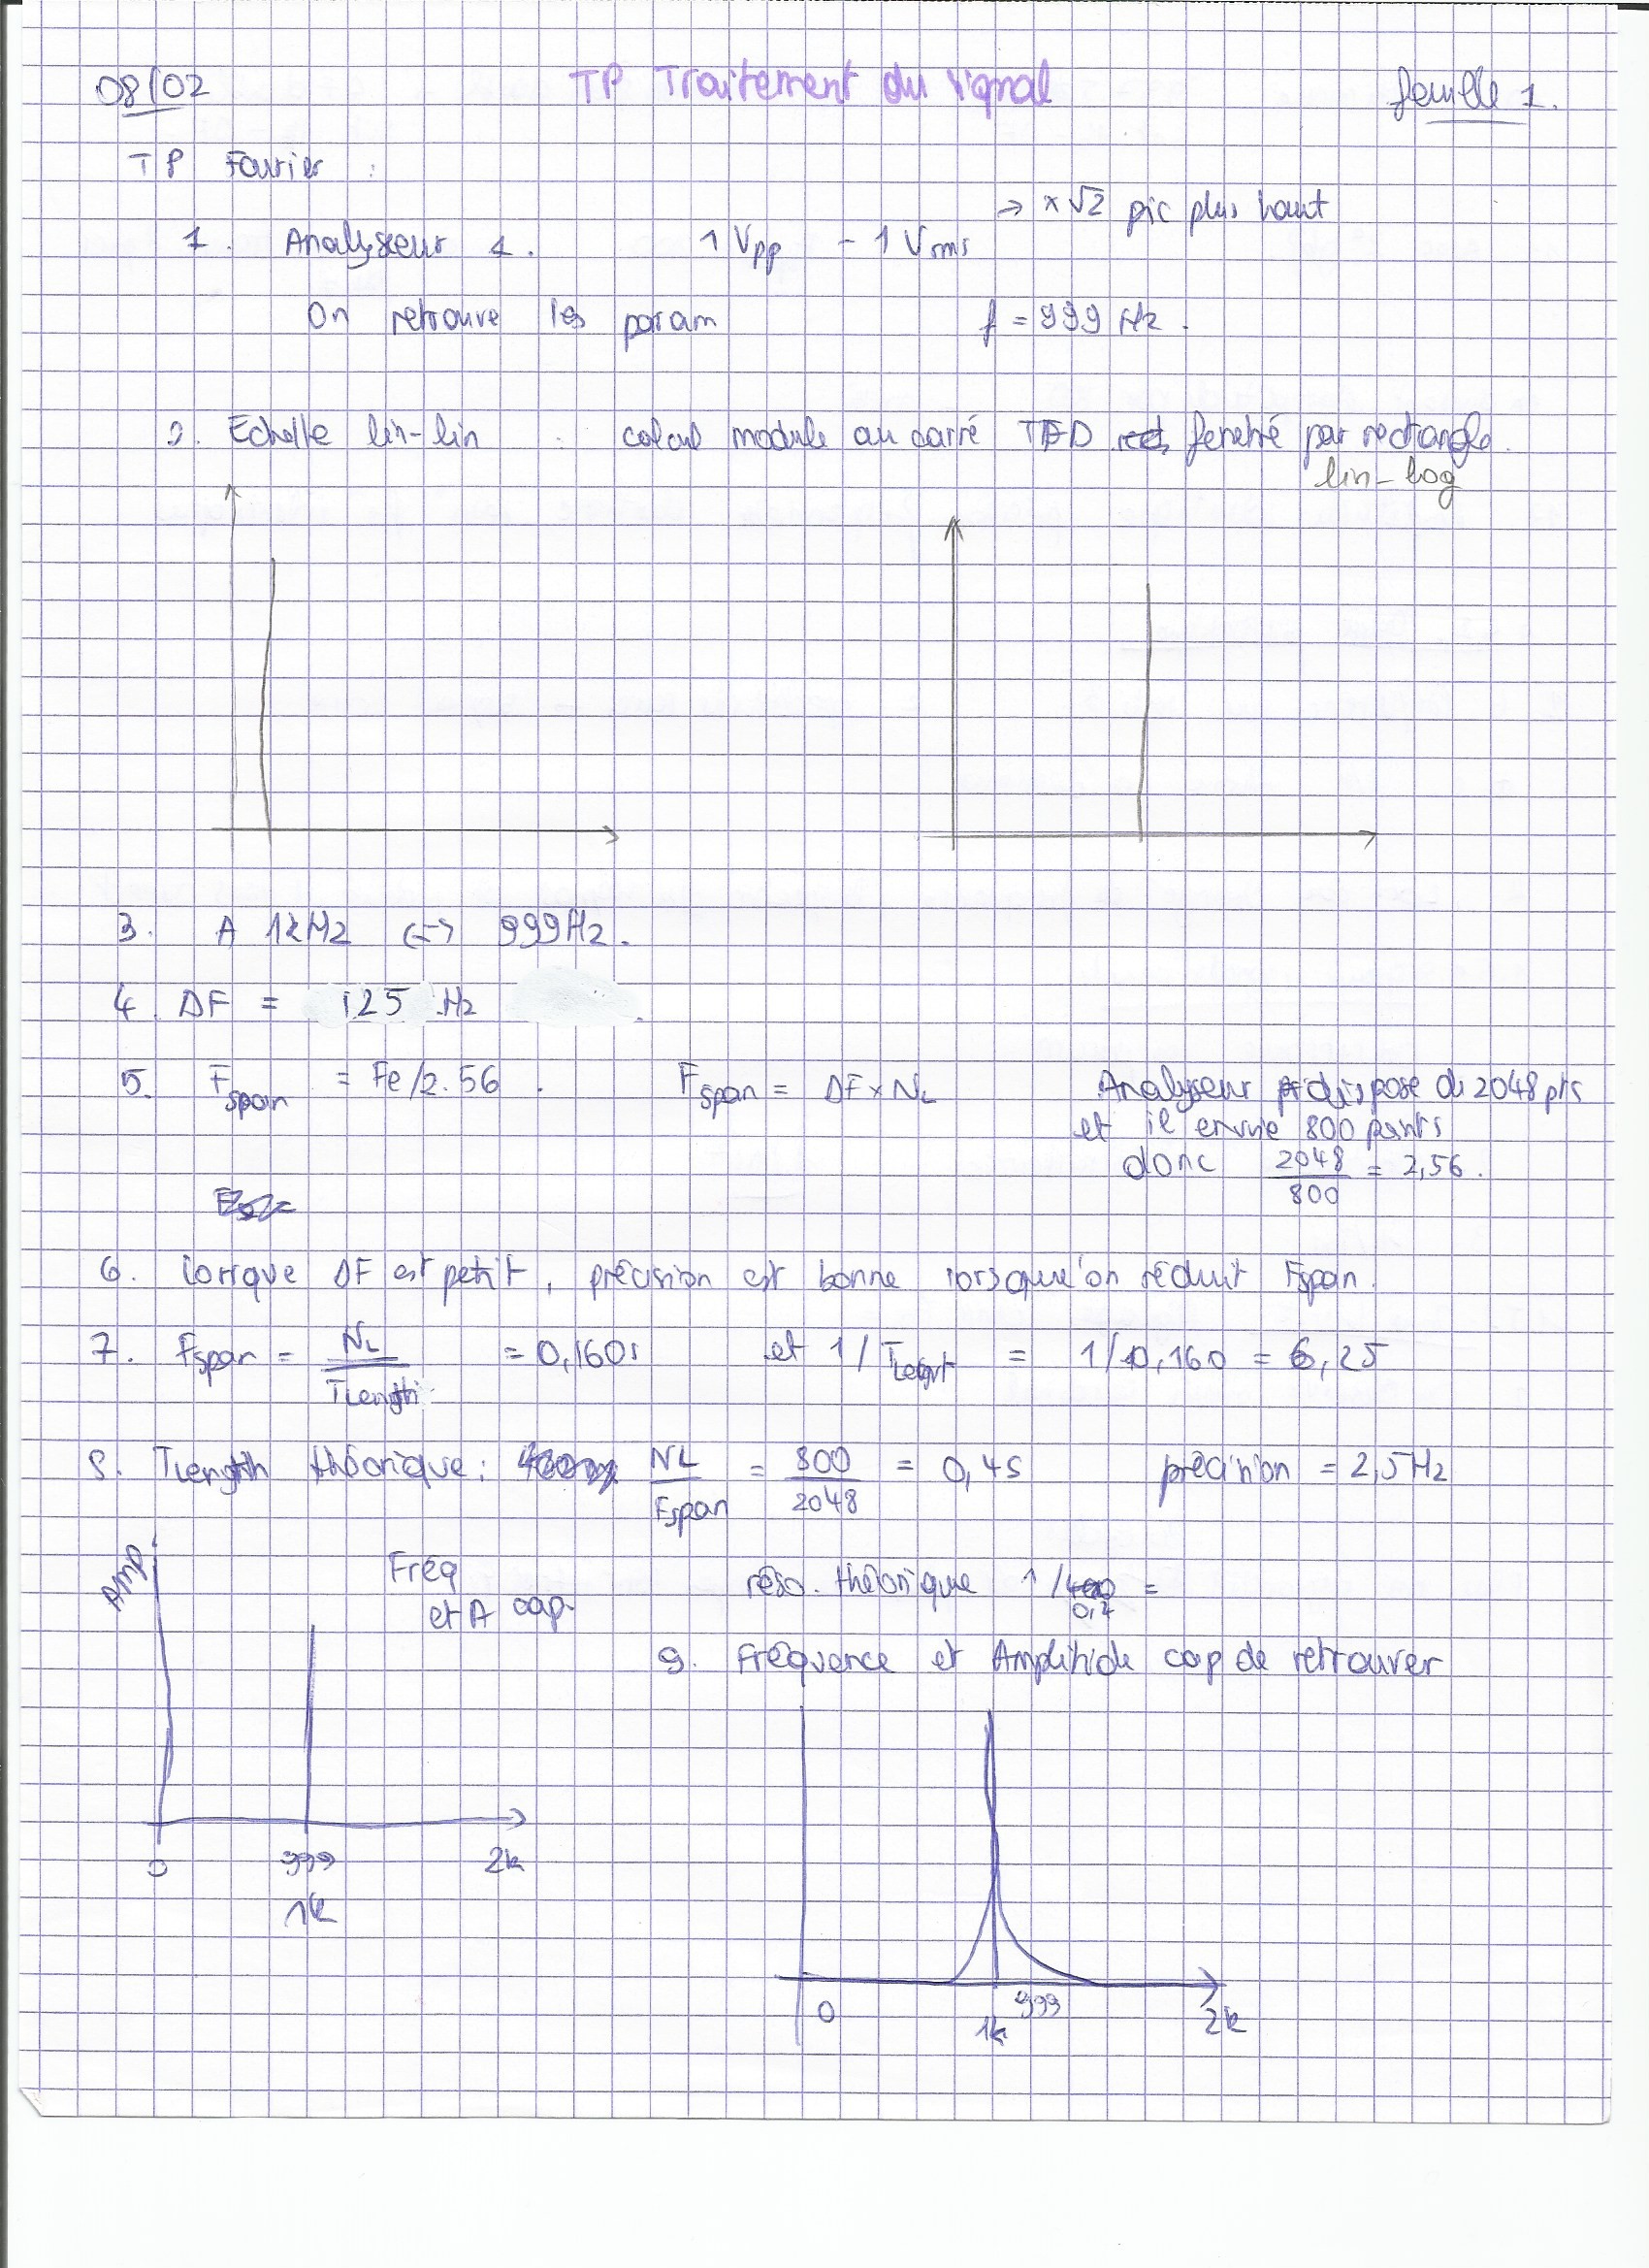 08/02 TP Traitement du signal feuille 1.
TP Fourier :
→ x√2 pic plus haut
1. Analyseur 1. 1 Vpp - 1 Vrms
On retrouve les param f = 999 Hz.
2. Echelle lin-lin calcul module au carré TFD fenetré par rectangle.
lin-log
3. A 1kHz <-> 999Hz.
4. DF = 125 Hz
5. Fspan = Fe/2.56. Fspan = DF x NL
Analyseur dispose de 2048 pts
et il envoie 800 points
donc 2048/800 = 2,56.
6. lorsque DF est petit, précision est bonne lorsqu'on réduit Fspan.
7. Fspan = NL/TLength = 0,160s et 1/TLenght = 1/0,160 = 6,25
8. TLength théorique : NL/Fspan = 800/2048 = 0,4s précision = 2,5Hz
Amp
Freq
et A cap.
réso. théorique 1/0,4 =
9. Fréquence et Amplitude cap de retrouver
0 999 2k
1k
0 1k 999 2k